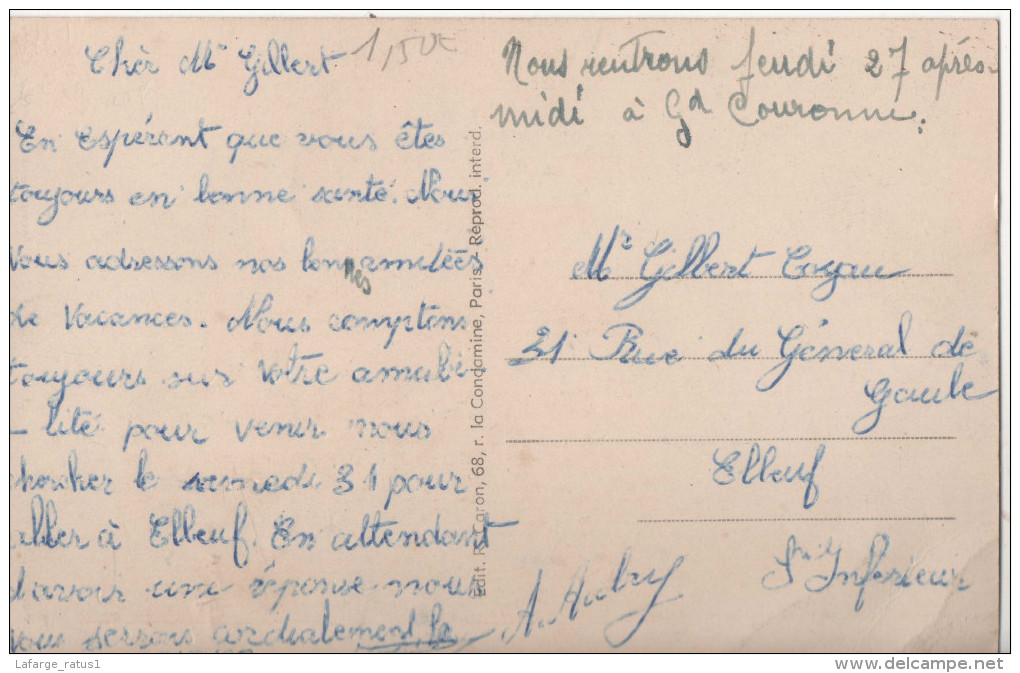 Chèr Mr Gilbert
1,50€
En Espérant que vous êtes
toujours en bonne santé. Nous
Vous adressons nos bonnes amitées
de Vacances. Nous comptons
toujours sur Votre amabi-
- lité pour venir nous
chercher le samedi 31 pour
aller à Elbeuf. En attendant
d'avoir une réponse nous
vous serrons cordialement la
Edit. R. aron, 68, r. la Condamine, Paris - Reprod. interd.
Nous rentrons Jeudi 27 après-
midi à Gd Couronne.
Mr Gilbert Cozau
31 Rue du Général de
Gaule
Elbeuf
Sne Inferieur
A. Aubry
Lafarge_ratus1
www.delcampe.net